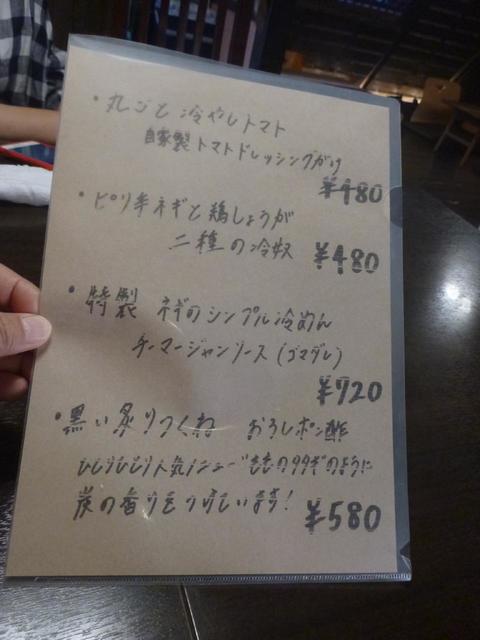 ・丸ごと冷やしトマト
自家製トマトドレッシングがけ
¥480
・ピリ辛ネギと鶏しょうが
二種の冷奴 ¥480
・特製 ネギのシンプル冷めん
チーマージャンソース(ゴマダレ)
¥720
・黒い炙りつくね おろしポン酢
人気メニュー"もものタタキ"のように
炭の香りをつけています! ¥580